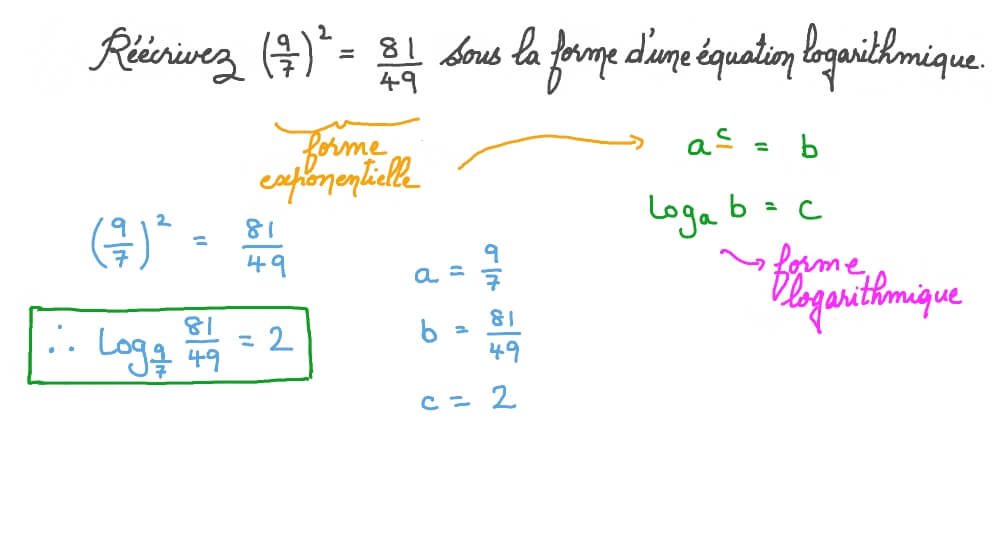 Réécrivez (9/7)² = 81/49 sous la forme d'une équation logarithmique.
forme
exponentielle
aᶜ = b
logₐ b = c
forme
logarithmique
(9/7)² = 81/49
∴ Log_(9/7) 81/49 = 2
a = 9/7
b = 81/49
c = 2